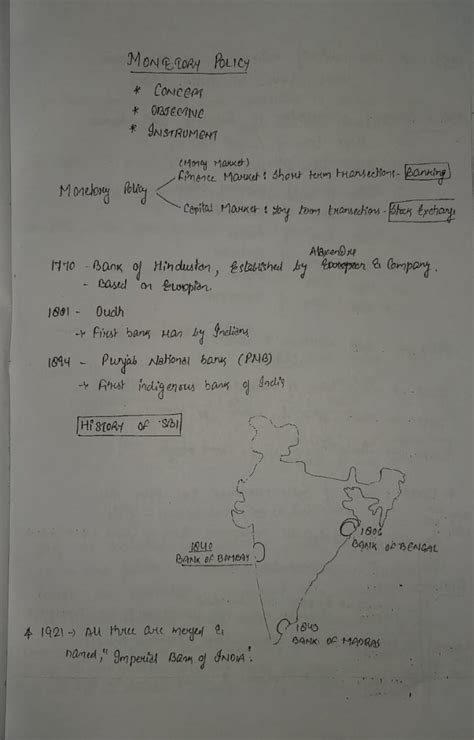 MONETORY POLICY
* CONCEPT
* OBJECTIVE
* INSTRUMENT
(Money Market)
Finance Market : Short term transections - Banking
Monetory Policy
Capital Market : long term transections - Stock Exchange
Alexendra
1770 - Bank of Hindustan, Established by European & Company.
- Based on Europian
1801 - Oudh
→ First bank by Indians
1894 - Punjab National bank (PNB)
→ First indigenous bank of India
HISTORY OF SBI
1806
BANK OF BENGAL
1840
BANK OF BOMBAY
1843
BANK OF MADRAS
1921 → All three are merged &
named, "Imperial Bank of INDIA".